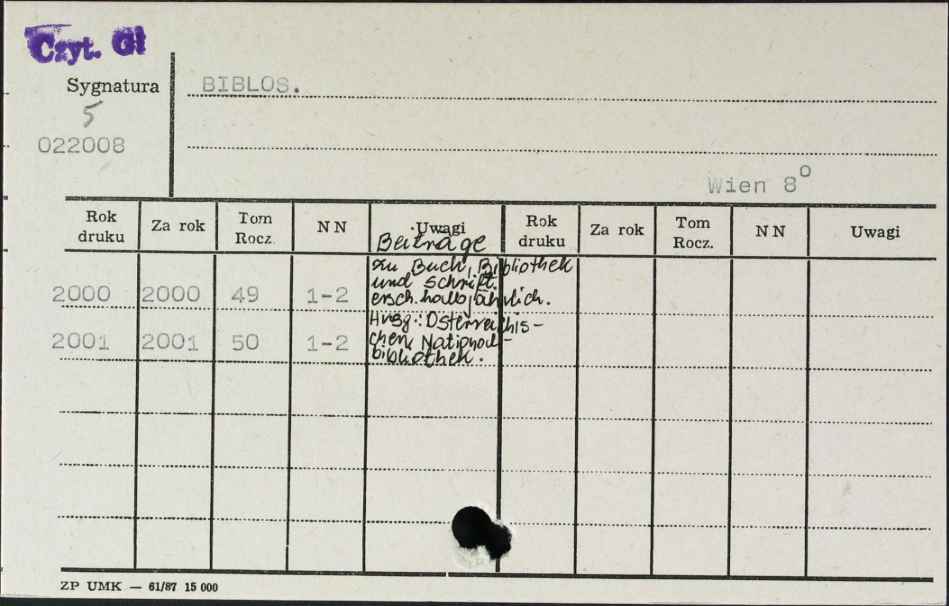 Czyt. Gł
Sygnatura
BIBLOS.
5
022008
Wien 8°
Rok druku Za rok Tom Rocz. NN Uwagi Rok druku Za rok Tom Rocz. NN Uwagi
Beiträge
zu Buch, Bibliothek
und Schrift.
2000 2000 49 1-2 ersch. halbjährlich.
Hrsg.: Österreichis-
2001 2001 50 1-2 chen National-
bibliothek.
ZP UMK — 61/87 15 000